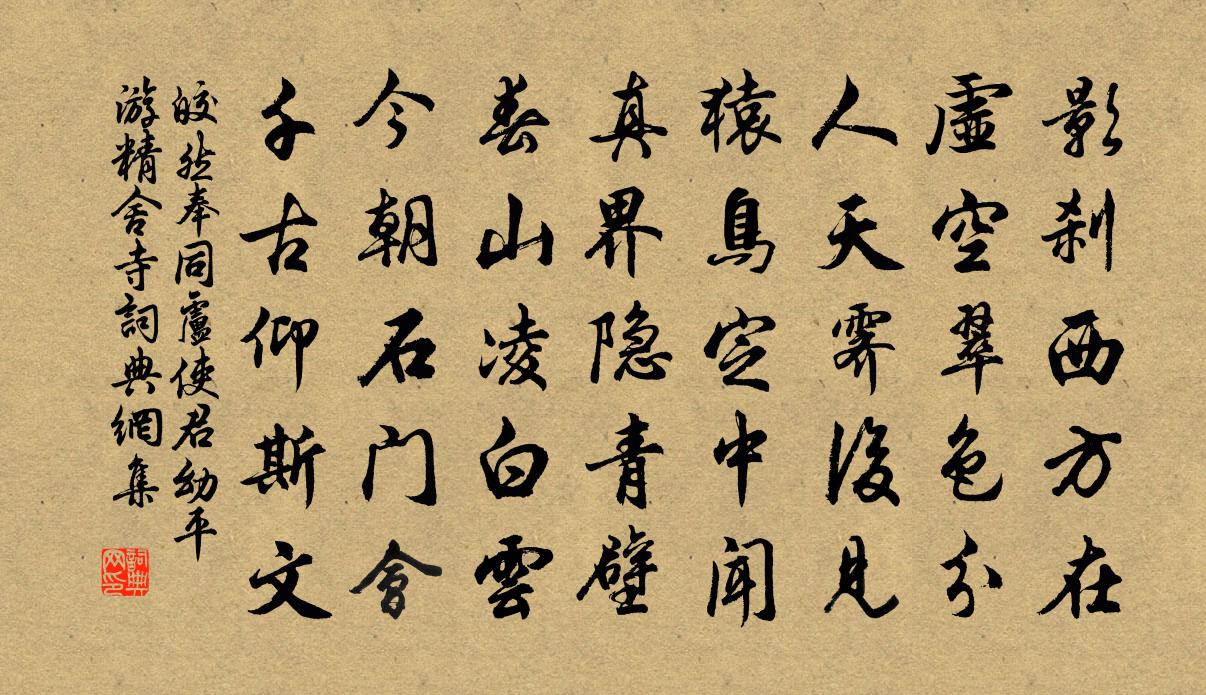 影刹西方在
虛空翠色分
人天霽後見
猿鳥定中聞
真界隐青壁
春山凌白雲
今朝石門會
千古仰斯文
皎然奉同盧使君幼平
游精舍寺詞典網集
詞典
网印